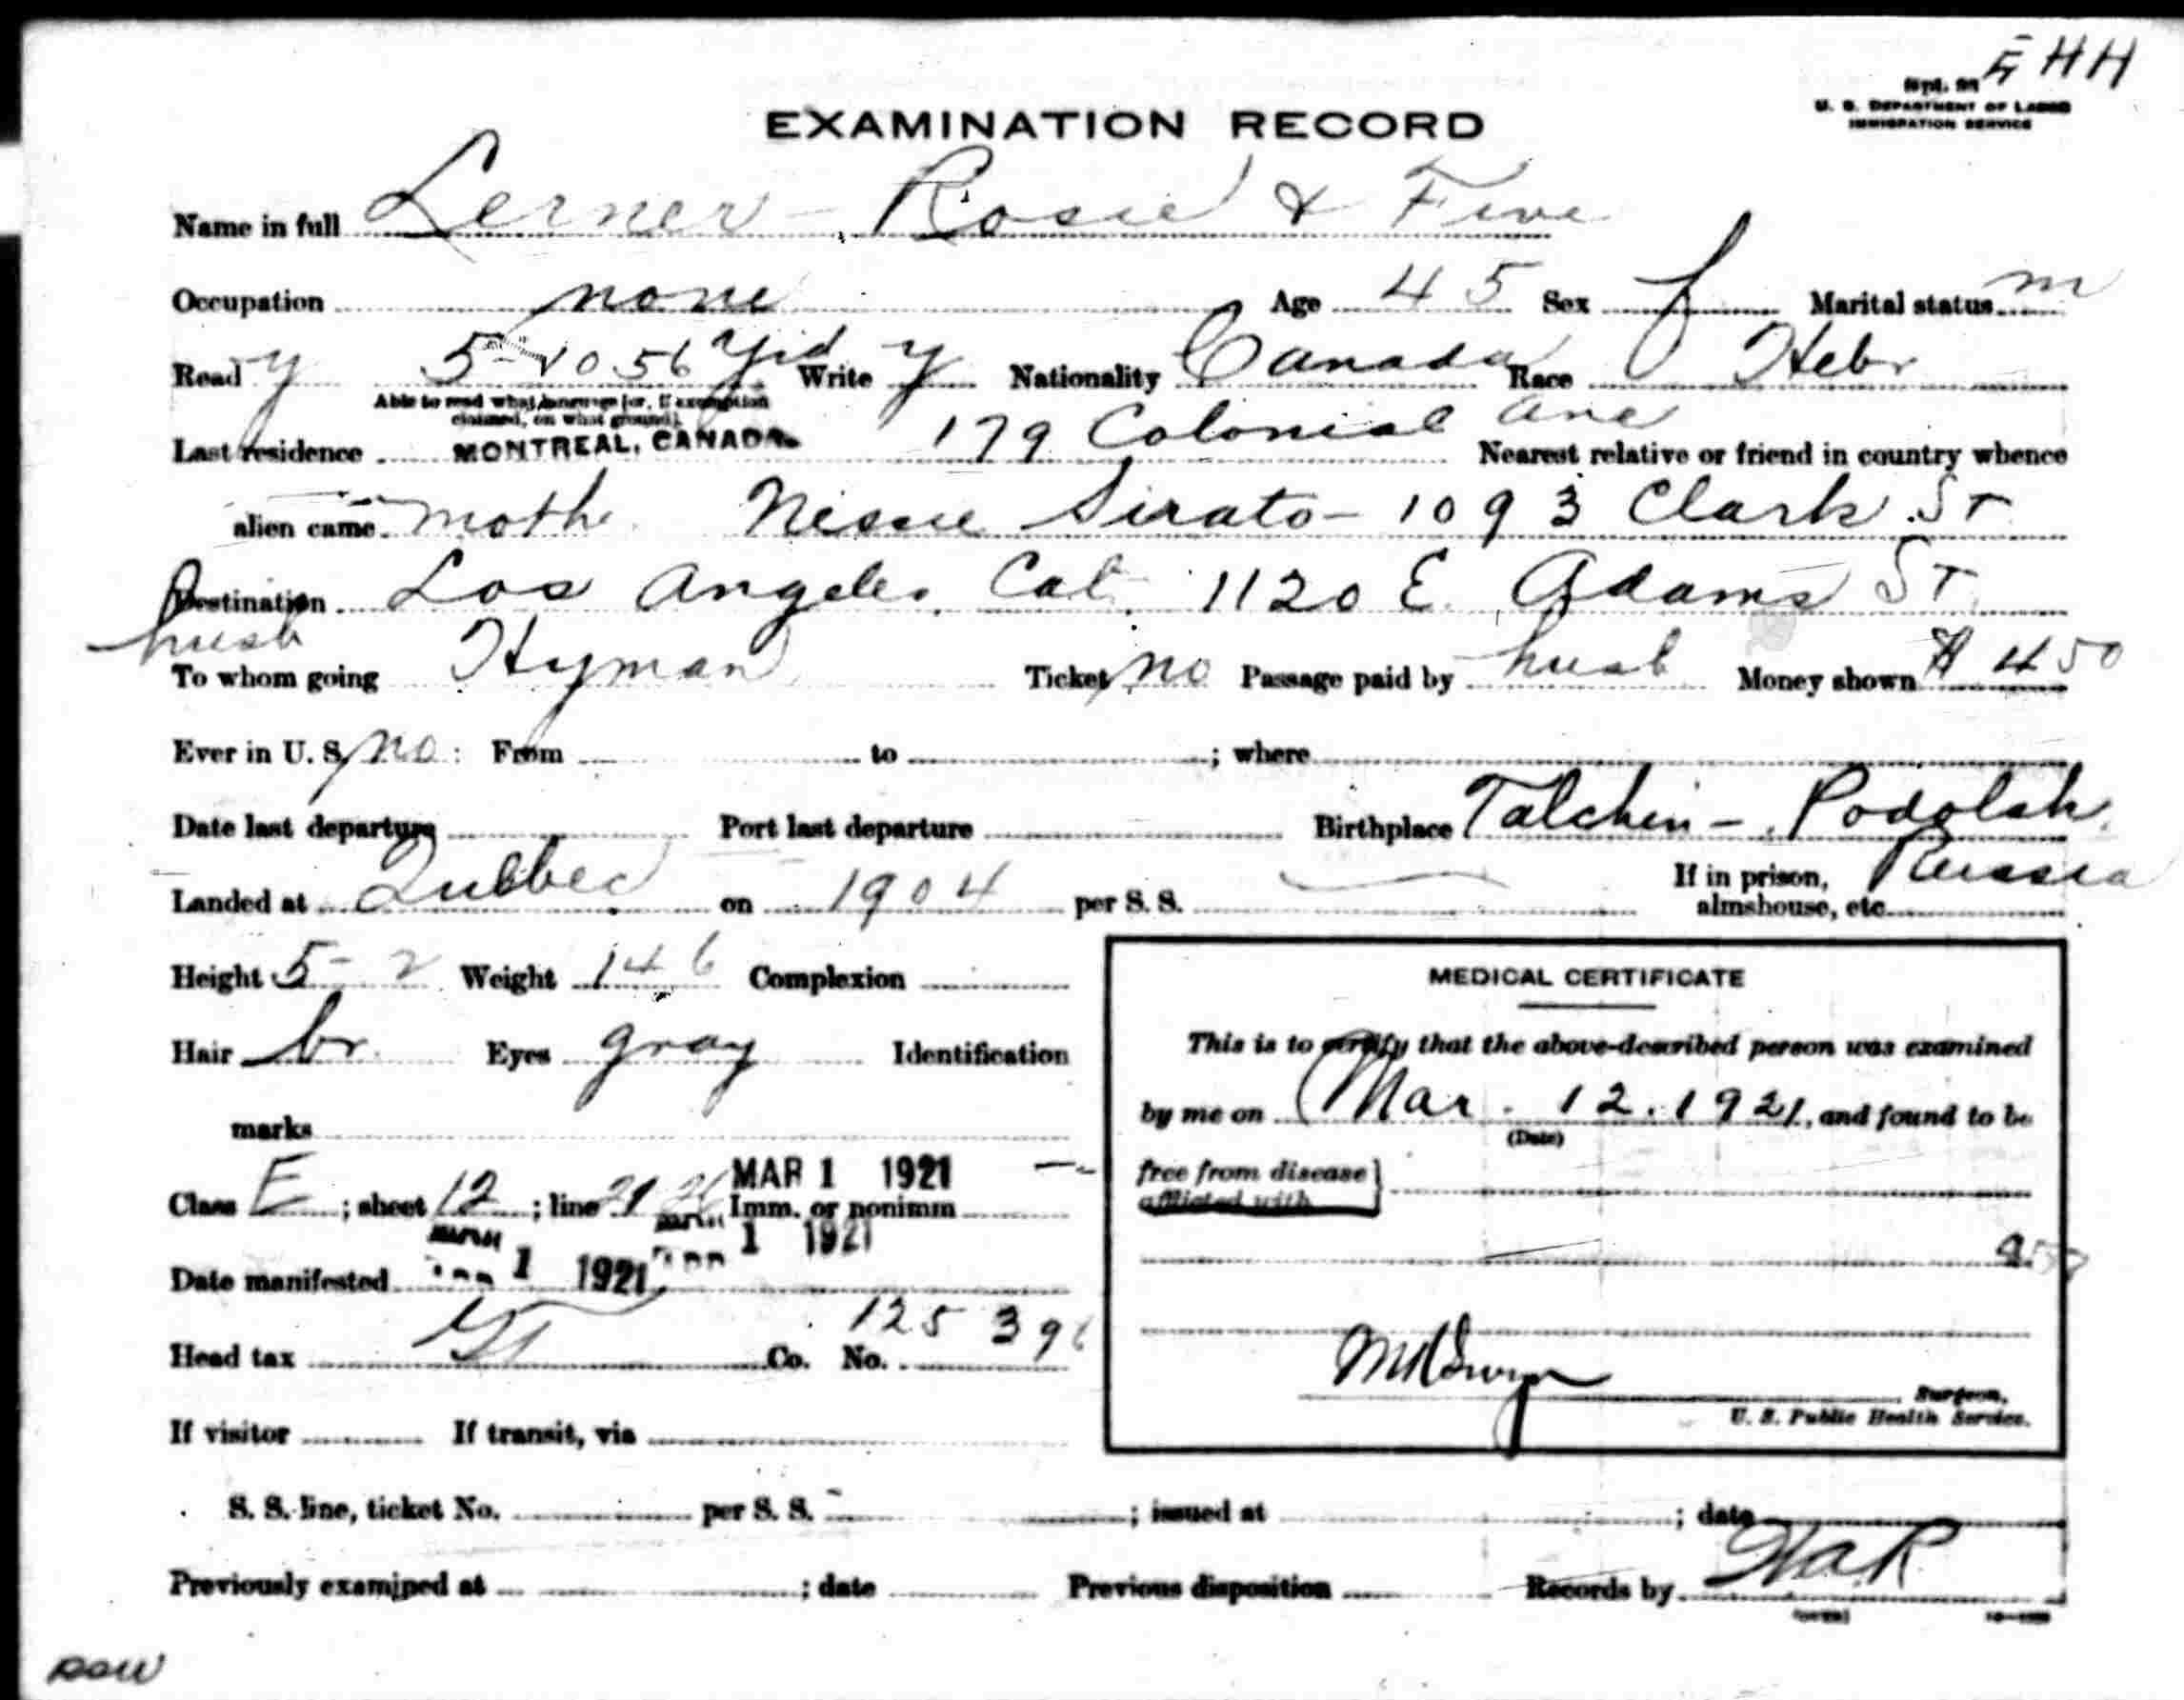 EHH
U. S. DEPARTMENT OF LABOR
IMMIGRATION SERVICE
EXAMINATION RECORD
Name in full Lerner - Rosie & Five
Occupation none Age 45 Sex f Marital status m
Read y 5-1056 Yid Write y Nationality Canada Race Hebr
Able to read what language [or, if exemption
claimed, on what ground]
Last residence MONTREAL, CANADA. 179 Colonial Ave Nearest relative or friend in country whence
alien came mothe Nessie Sirato - 1093 Clark St
Destination Los Angeles, Cal. 1120 E. Adams St
husb
To whom going Hyman Ticket no Passage paid by husb Money shown $ 450
Ever in U. S. no : From to ; where
Date last departure Port last departure Birthplace Talchin - Podolsk
Russia
Landed at Quebec on 1904 per S. S. If in prison,
almshouse, etc.
Height 5-2 Weight 146 Complexion
Hair br. Eyes gray Identification
marks
Class E ; sheet 12 ; line 21 Imm. or nonimm
MAR 1 1921
1 1921
Date manifested 1 1921
Head tax Co. No. 125 396
If visitor If transit, via
MEDICAL CERTIFICATE
This is to certify that the above-described person was examined
by me on Mar. 12. 1921, and found to be
(Date)
free from disease
afflicted with
Surgeon,
U. S. Public Health Service.
S. S. line, ticket No. per S. S. ; issued at ; date
Previously examined at ; date Previous disposition Records by
(OVER)